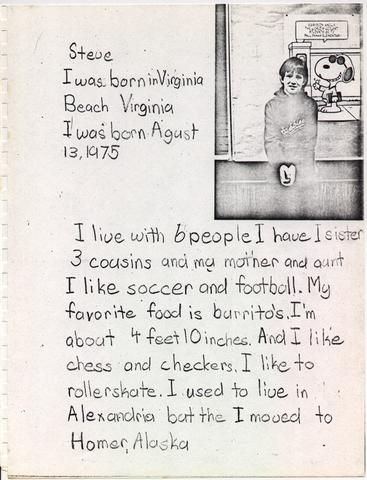 Steve
I was born in Virginia
Beach Virginia
I was born Agust
13, 1975
I live with 6 people I have 1 sister
3 cousins and my mother and aunt
I like soccer and football. My
favorite food is burrito's. I'm
about 4 feet 10 inches. And I like
chess and checkers. I like to
rollerskate. I used to live in
Alexandria but the I moved to
Homer, Alaska